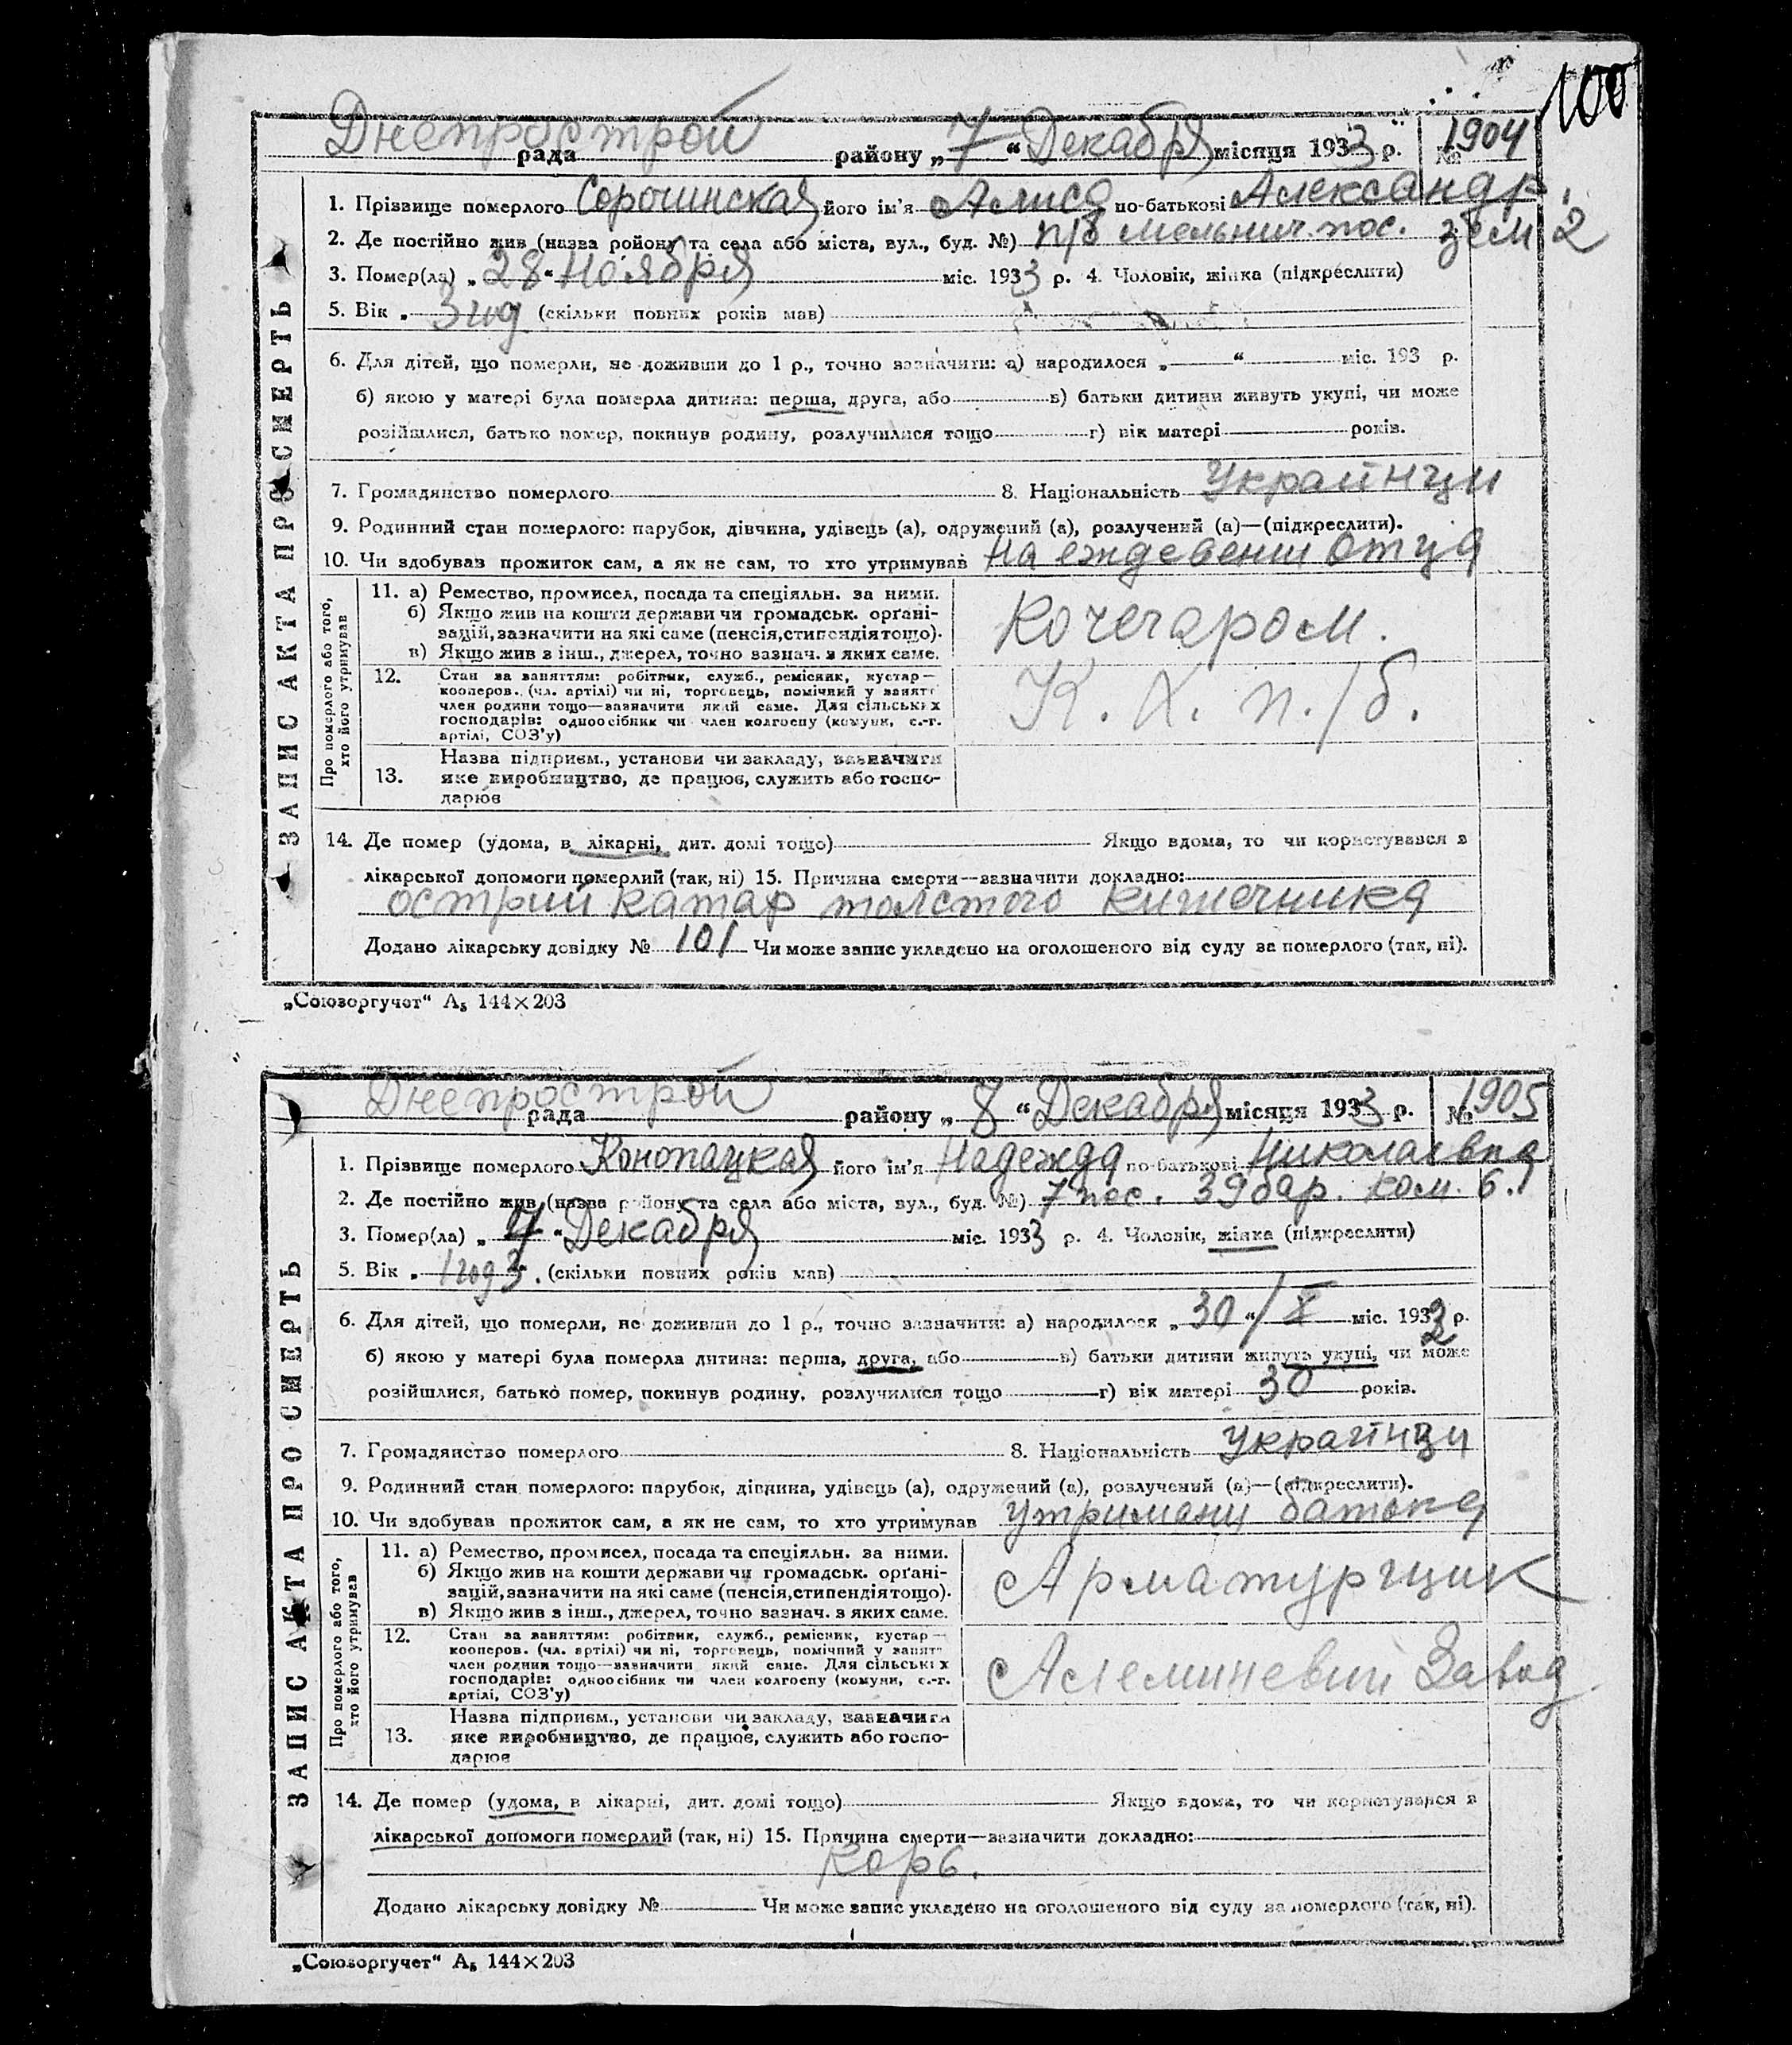 100
Днепрострой
рада району „ 7 “ Декабря місяця 1933 р. № 1904
ЗАПИС АКТА ПРО СМЕРТЬ
1. Прізвище померлого Сорочинская його ім'я Алиса по-батькові Александр.
2. Де постійно жив (назва району та села або міста, вул., буд. №) п/б мельнич. пос. зем 2
3. Помер(ла) „ 28 “ Ноября міс. 1933 р. 4. Чоловік, жінка (підкреслити)
5. Вік „ 3 год (скільки повних років мав)
6. Для дітей, що померли, не доживши до 1 р., точно зазначити: а) народилося „ “ міс. 193 р.
б) якою у матері була померла дитина: перша, друга, або в) батьки дитини живуть укупі, чи може
розійшлися, батько помер, покинув родину, розлучилися тощо г) вік матері років.
7. Громадянство померлого 8. Національність Украинци
9. Родинний стан померлого: парубок, дівчина, удівець (а), одружений (а), розлучений (а)—(підкреслити).
10. Чи здобував прожиток сам, а як не сам, то хто утримував На еждевени отца
Про померлого або того,
хто його утримував
11. а) Ремество, промисел, посада та спеціяльн. за ними.
б) Якщо жив на кошти держави чи громадськ. орґані-
зацій, зазначити на які саме (пенсія, стипендія тощо).
в) Якщо жив з інш., джерел, точно зазнач. з яких саме.
Кочегаром.
12. Стан за заняттям: робітник, служб., ремісник, кустар—
кооперов. (чл. артілі) чи ні, торговець, помічний у занятт
член родини тощо—зазначити який саме. Для сільських
господарів: одноосібник чи член колгоспу (комуни, с.-г.
артілі, СОЗ'у)
К. Х. п./б.
13. Назва підприєм., установи чи закладу, зазначити
яке виробництво, де працює, служить або госпо-
дарює
14. Де помер (удома, в лікарні, дит. домі тощо) Якщо вдома, то чи користувався з
лікарської допомоги померлий (так, ні) 15. Причина смерти—зазначити докладно:
острий катар толстого кишечника
Додано лікарську довідку № 101 Чи може запис укладено на оголошеного від суду за померлого (так, ні).
„Союзоргучет“ А₅ 144×203
Днепрострой
рада району „ 8 “ Декабря місяця 1933 р. № 1905
ЗАПИС АКТА ПРО СМЕРТЬ
1. Прізвище померлого Конопацкая його ім'я Надежда по-батькові Николаевна
2. Де постійно жив (назва району та села або міста, вул., буд. №) 7 пос. 39 бар. ком. 6.
3. Помер(ла) „ 7 “ Декабря міс. 1933 р. 4. Чоловік, жінка (підкреслити)
5. Вік „ 1 год 3. (скільки повних років мав)
6. Для дітей, що померли, не доживши до 1 р., точно зазначити: а) народилося „ 30 “ / X міс. 1932 р.
б) якою у матері була померла дитина: перша, друга, або в) батьки дитини живуть укупі, чи може
розійшлися, батько помер, покинув родину, розлучилися тощо г) вік матері 30 років.
7. Громадянство померлого 8. Національність Украинци
9. Родинний стан померлого: парубок, дівчина, удівець (а), одружений (а), розлучений (а)—(підкреслити).
10. Чи здобував прожиток сам, а як не сам, то хто утримував утримани батька
Про померлого або того,
хто його утримував
11. а) Ремество, промисел, посада та спеціяльн. за ними.
б) Якщо жив на кошти держави чи громадськ. орґані-
зацій, зазначити на які саме (пенсія, стипендія тощо).
в) Якщо жив з інш., джерел, точно зазнач. з яких саме.
Арматурщик
12. Стан за заняттям: робітник, служб., ремісник, кустар—
кооперов. (чл. артілі) чи ні, торговець, помічний у занятт
член родини тощо—зазначити який саме. Для сільських
господарів: одноосібник чи член колгоспу (комуни, с.-г.
артілі, СОЗ'у)
Алеминевий Завод
13. Назва підприєм., установи чи закладу, зазначити
яке виробництво, де працює, служить або госпо-
дарює
14. Де помер (удома, в лікарні, дит. домі тощо) Якщо вдома, то чи користувався з
лікарської допомоги померлий (так, ні) 15. Причина смерти—зазначити докладно:
Корь.
Додано лікарську довідку № Чи може запис укладено на оголошеного від суду за померлого (так, ні).
„Союзоргучет“ А₅ 144×203